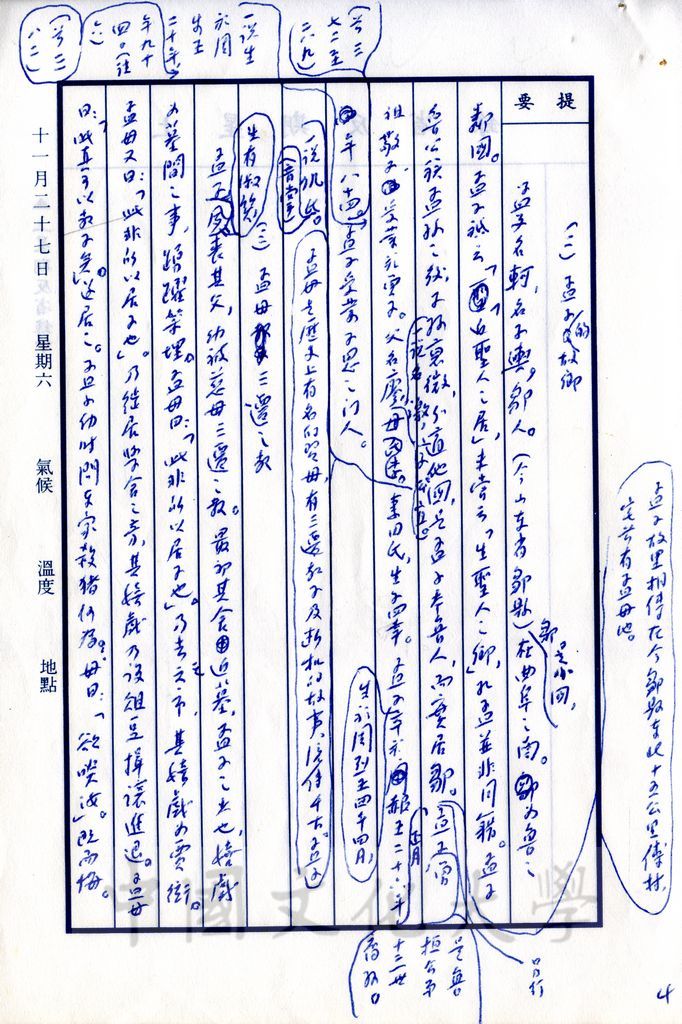 提要
(二)孟子的故鄉
孟子名軻,名子輿,鄒人。(今山東省鄒縣)在曲阜之南。鄒為魯之
鄒是小國,
鄰國。孟子祗云「近聖人之居」未嘗云「生聖人之鄉」孔孟並非同籍。孟子
魯公族孟孫之後子孫衰微,分適他國,是孟子本魯人,而實居鄒。
孟子曾
是魯
桓公
十三世
另行
祖敬子受業於曾子。父名激,母
一說名
妻田氏,生子
孟子卒於周赧王二十六年
正月
年八十四。孟子受業子思之门人。
生於周烈王四年四月,
一說仉氏。
(音掌)
孟母是歷史上有名的賢母,有三遷教子及斷机的故事,流傳千古。孟子
生有淑質
(三)孟母三遷之教
孟子夙喪其父,幼被慈母三遷之教。最初其舍近墓,孟子之少也,嬉戲
為墓間之事,踴躍築埋。孟母曰:「此非所以居子也」。乃去之市,其嬉戲為賈衒。
孟母又曰:「此非所以居子也」。乃徙居學宮之旁,其嬉戲乃設俎豆揖讓進退。孟母
曰:此真可以教子矣。遂居之。孟子幼時問東家殺猪何為?母曰:「欲啖汝」既而悔。
孟子故里相傳在今鄒縣東北十五公里傅村,
宅共有孟母池。
一說生
於周
二十年
年九十
四。(注
六)
十一月二十七日 星期六 氣候 溫度 地點
中國文化大學
4